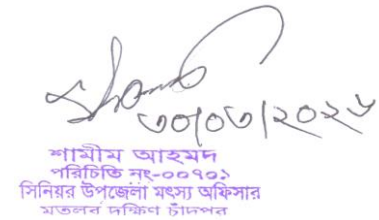 ৩০/০৩/২০২৬
শামীম আহমদ
পরিচিতি নং-০০৭০১
সিনিয়র উপজেলা মৎস্য অফিসার
মতলব দক্ষিণ চাঁদপুর